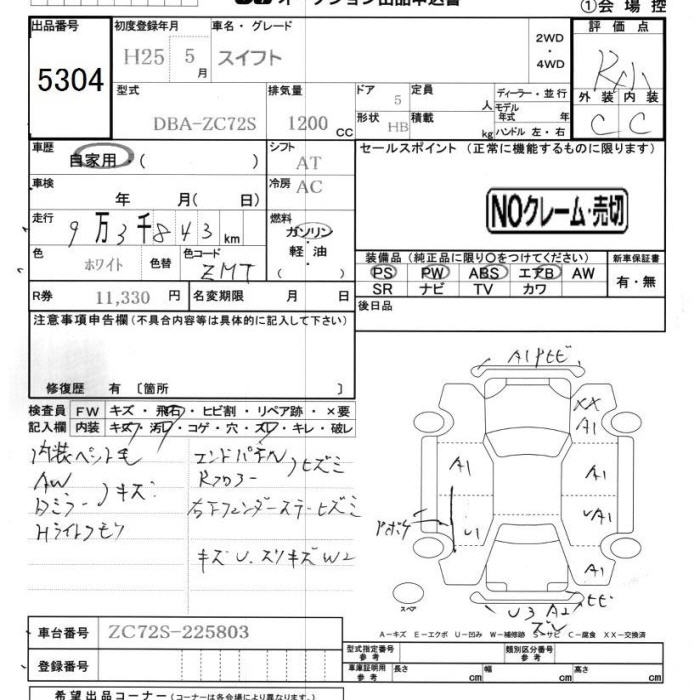 ①会場控
出品番号 初度登録年月 車名・グレード 2WD・4WD 評価点
5304 H25 5月 スイフト R
型式 DBA-ZC72S 排気量 1200 CC
ドア 5 定員 人 ディーラー・並行
モデル年式 年
形状 HB 積載 kg ハンドル 左・右
外装 内装
C C
車歴 自家用・( )
シフト AT
車検 年 月( 日)
冷房 AC
走行 9万3千843km
燃料 ガソリン・軽・油 ( )
色 ホワイト 色替 色コード ZMT
R券 11,330円 名変期限 月 日
セールスポイント (正常に機能するものに限ります)
NOクレーム・売切
装備品 (純正品に限り○をつけてください) 新車保証書
PS PW ABS エアB AW 有・無
SR ナビ TV カワ
後日品
注意事項申告欄(不具合内容等は具体的に記入して下さい)
修復歴 有 〔箇所 〕
検査員 FW キズ・飛石・ヒビ割・リペア跡・×要
記入欄 内装 キズ・汚レ・コゲ・穴・スレ・キレ・破レ
内装ペット毛
AW
Dミラー キズ
Hライトクモリ
エンドパネル
Rフロアー ヒズミ
右下フェンダーステーヒズミ
キズU、スリキズW2
A1 ヒビ
XX
A1
A1
A1
UA1
U1
A1
スペア
U3 A2 ヒビ
ズレ
A-キズ E-エクボ U-凹み W-補修跡 S-サビ C-腐食 XX-交換済
車台番号 ZC72S-225803
登録番号
型式指定番号 参考 類別区分番号 参考
車庫証明用 参考 長さ cm 幅 cm 高さ cm
希望出品コーナー(コーナーは各会場により異なります。)